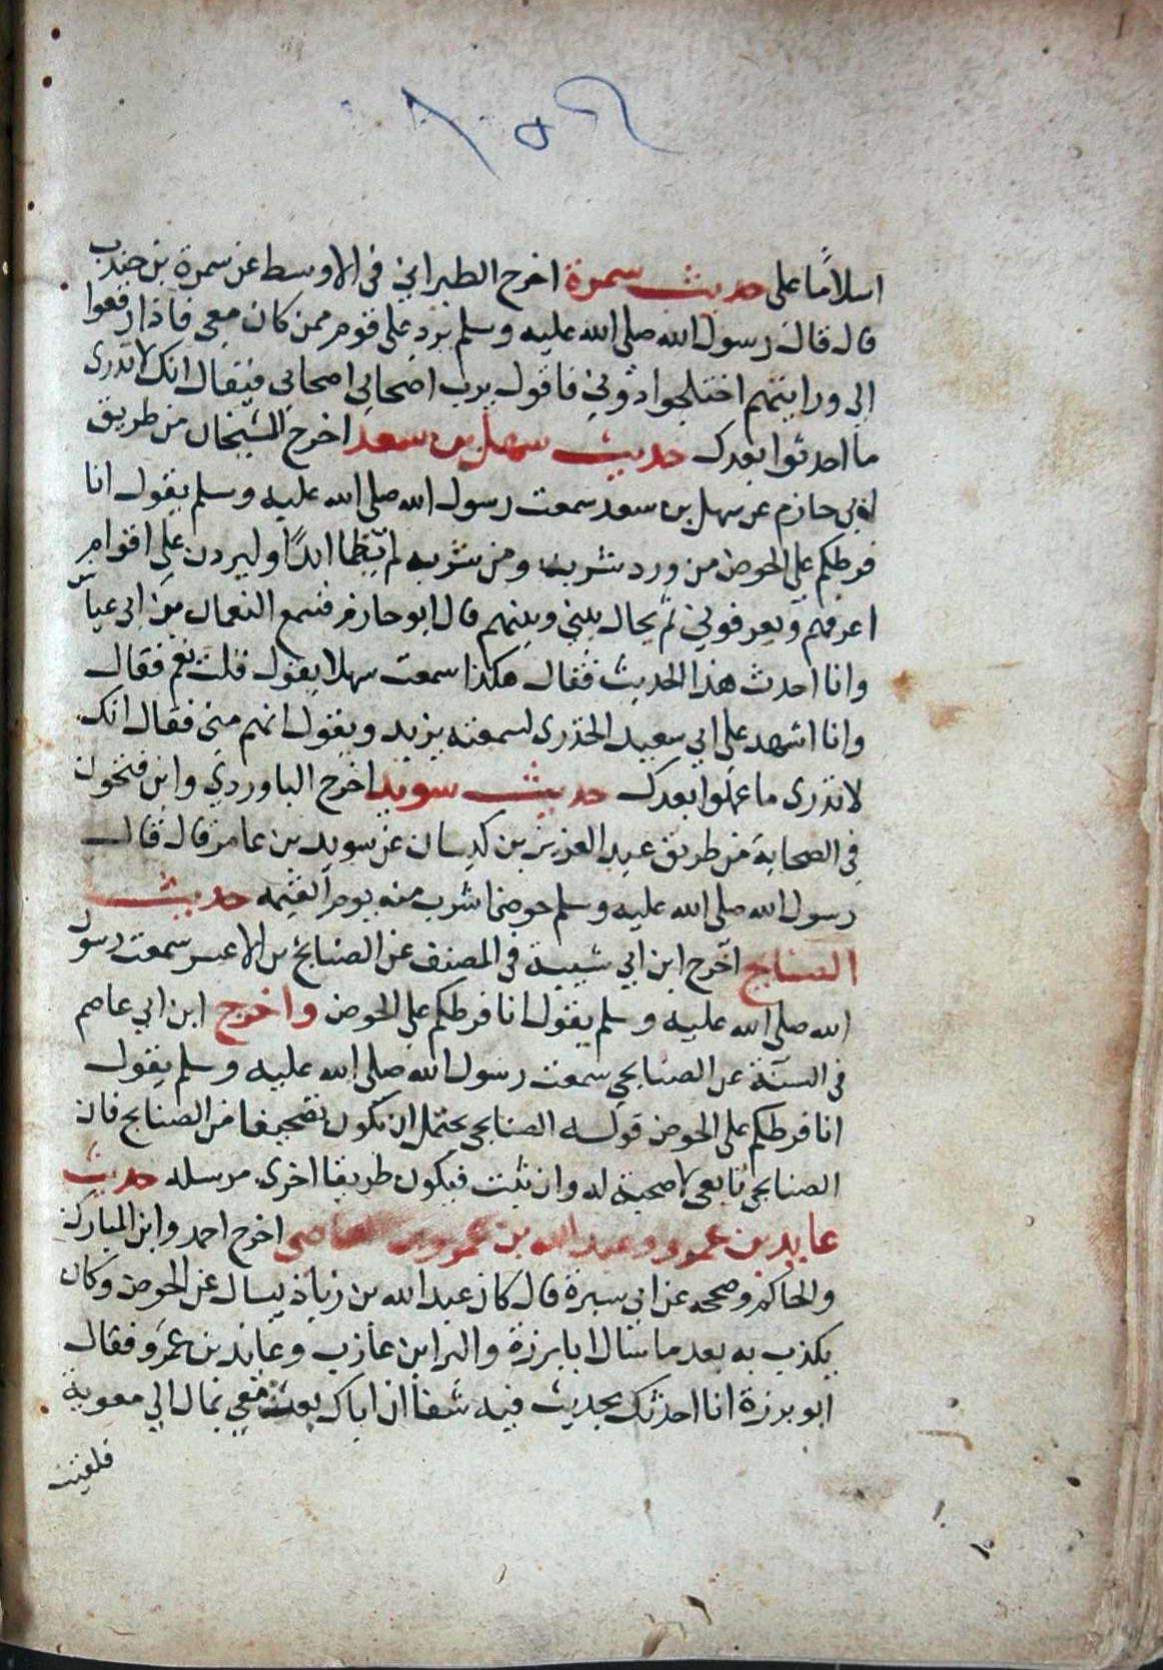 اسلامًا على حديث سمرة اخرج الطبراني في الاوسط عن سمرة بن جندب
قال قال رسول الله صلى الله عليه وسلم يرد على قوم ممن كان معي فاذا رفعوا
الي ورايتهم اختلجوا دوني فاقول يرب اصحابي اصحابي فيقال انك لا تدرى
ما احدثوا بعدك حديث سهل بن سعد اخرج الشيخان من طريق
ابي حازم عن سهل بن سعد سمعت رسول الله صلى الله عليه وسلم يقول انا
فرطكم على الحوض من ورد شربه ومن شربه لم يظما ابدًا وليردن على اقوام
اعرفهم ويعرفوني ثم يحال بيني وبينهم قال ابو حازم فسمع النعمان بن ابى عياش
وانا احدث هذا الحديث فقال هكذا سمعت سهلا يقول قلت نعم فقال
وانا اشهد على ابي سعيد الخدرى لسمعته يزيد ويقول انهم منى فقال انك
لا تدرى ما عملوا بعدك حديث سويد اخرج الباوردي وابن فتحون
في الصحابة من طريق عبد العزيز بن كيسان عن سويد بن عامر قال قال
رسول الله صلى الله عليه وسلم حوضى اشرب منه يوم القيمه حديث
الصنابح اخرج ابن ابي شيبة في المصنف عن الصنابح بن الاعسر سمعت رسول
الله صلى الله عليه وسلم يقول انا فرطكم على الحوض واخرج ابن ابي عاصم
في السنة عن الصنابحي سمعت رسول الله صلى الله عليه وسلم يقول
انا فرطكم على الحوض قوله الصنابحي يحتمل ان تكون تصحيفا من الصنابح فان
الصنابحي تابعي لا صحبة له وان ثبت فيكون طريقا اخرى مرسله حديث
عايد بن عمرو وعبد الله بن عمرو بن العاصى اخرج احمد وابن المبارك
والحاكم وصححه عن ابي سبرة قال كان عبد الله بن زياد يسال عن الحوض وكان
يكذب به بعد ما سال ابا برزة والبرا بن عازب وعايد بن عمرو فقال
ابو برزة انا احدثك بحديث فيه شفا ان اباك بعث معي بمال الي معوية
فلقيت